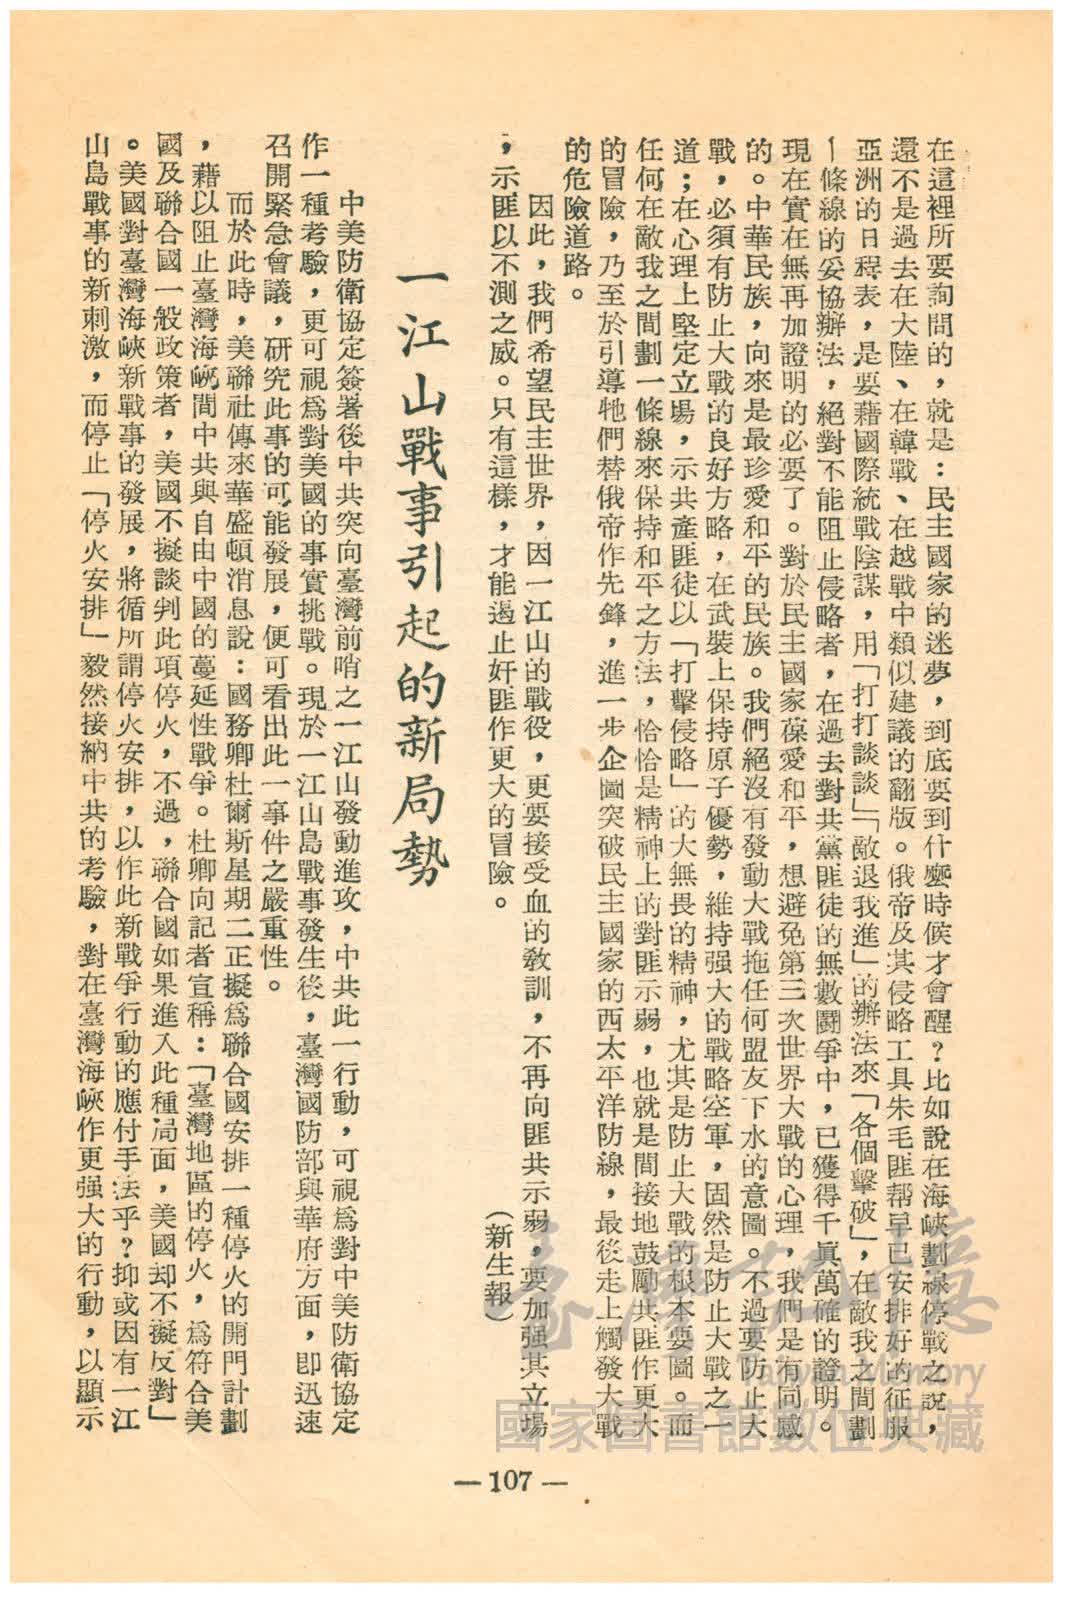 在這裡所要詢問的，就是：民主國家的迷夢，到底要到什麼時候才會醒？比如說在海峽劃線停戰之說，
還不是過去在大陸、在韓戰、在越戰中類似建議的翻版。俄帝及其侵略工具朱毛匪幫早已安排好的征服
亞洲的日程表，是要藉國際統戰陰謀，用「打打談談」「敵退我進」的辦法來「各個擊破」，在敵我之間劃
一條線的妥協辦法，絕對不能阻止侵略者，在過去對共黨匪徒的無數鬪爭中，已獲得千眞萬確的證明。
現在實在無再加證明的必要了。對於民主國家葆愛和平，想避免第三次世界大戰的心理，我們是有同感
的。中華民族，向來是最珍愛和平的民族。我們絕沒有發動大戰拖任何盟友下水的意圖。不過要防止大
戰，必須有防止大戰的良好方略，在武裝上保持原子優勢，維持强大的戰略空軍，固然是防止大戰之一
道；在心理上堅定立場，示共產匪徒以「打擊侵略」的大無畏的精神，尤其是防止大戰的根本要圖。而
任何在敵我之間劃一條線來保持和平之方法，恰恰是精神上的對匪示弱，也就是間接地鼓勵共匪作更大
的冒險，乃至於引導牠們替俄帝作先鋒，進一步企圖突破民主國家的西太平洋防線，最後走上觸發大戰
的危險道路。
因此，我們希望民主世界，因一江山的戰役，更要接受血的敎訓，不再向匪共示弱，要加强其立場
，示匪以不測之威。只有這樣，才能遏止奸匪作更大的冒險。
（新生報）
一江山戰事引起的新局勢
中美防衛協定簽署後中共突向臺灣前哨之一江山發動進攻，中共此一行動，可視爲對中美防衛協定
作一種考驗，更可視爲對美國的事實挑戰。現於一江山島戰事發生後，臺灣國防部與華府方面，卽迅速
召開緊急會議，研究此事的可能發展，便可看出此一事件之嚴重性。
而於此時，美聯社傳來華盛頓消息說：國務卿杜爾斯星期二正擬爲聯合國安排一種停火的開門計劃
，藉以阻止臺灣海峽間中共與自由中國的蔓延性戰爭。杜卿向記者宣稱：「臺灣地區的停火，爲符合美
國及聯合國一般政策者，美國不擬談判此項停火，不過，聯合國如果進入此種局面，美國却不擬反對」
。美國對臺灣海峽新戰事的發展，將循所謂停火安排，以作此新戰爭行動的應付手法乎？抑或因有一江
山島戰事的新刺激，而停止「停火安排」毅然接納中共的考驗，對在臺灣海峽作更强大的行動，以顯示
— 107 —
臺灣記憶
Taiwan Memory
國家圖書館數位典藏